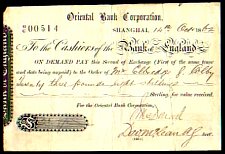 Oriental Bank Corporation.
No 00514 SHANGHAI 14th Octr 1862
To the Cashiers of the Bank of England
ON DEMAND PAY this Second of Exchange (First of the same tenor
and date being unpaid) to the Order of Mr Elbridge G. Colby
Twenty three pounds eight shillings
Sterling for value received.
For the Oriental Bank Corporation.